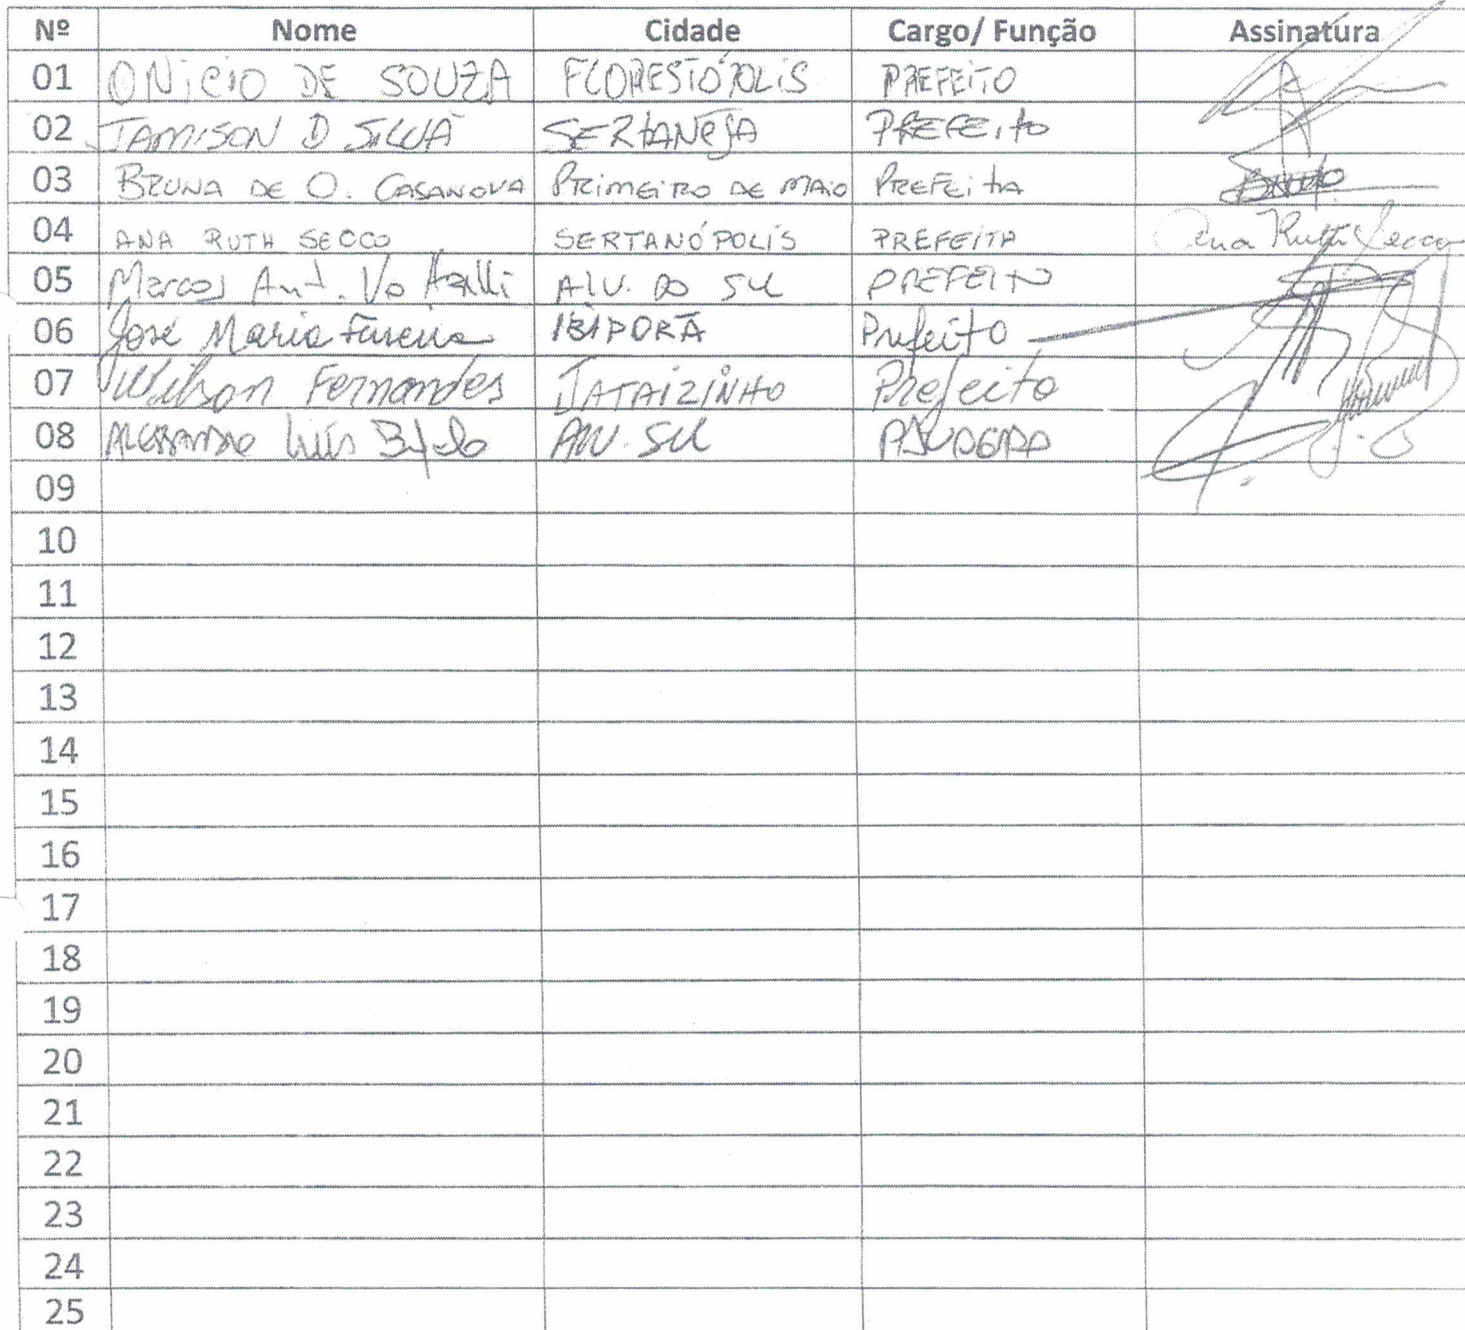 Nº Nome Cidade Cargo/ Função Assinatura
01 ONICIO DE SOUZA FLORESTÓPOLIS PREFEITO
02 JAMISON D SILVA SERTANEJA PREFEITO
03 BRUNA DE O. CASANOVA PRIMEIRO DE MAIO PREFEITA
04 ANA RUTH SECCO SERTANÓPOLIS PREFEITA Ana Ruth Secco
05 Marcos Ant. ALV. DO SUL PREFEITO
06 José Maria Ferreira IBIPORÃ Prefeito
07 Wilson Fernandes JATAIZINHO Prefeito
08 ALESSANDRO Luís ALV. SUL
09
10
11
12
13
14
15
16
17
18
19
20
21
22
23
24
25